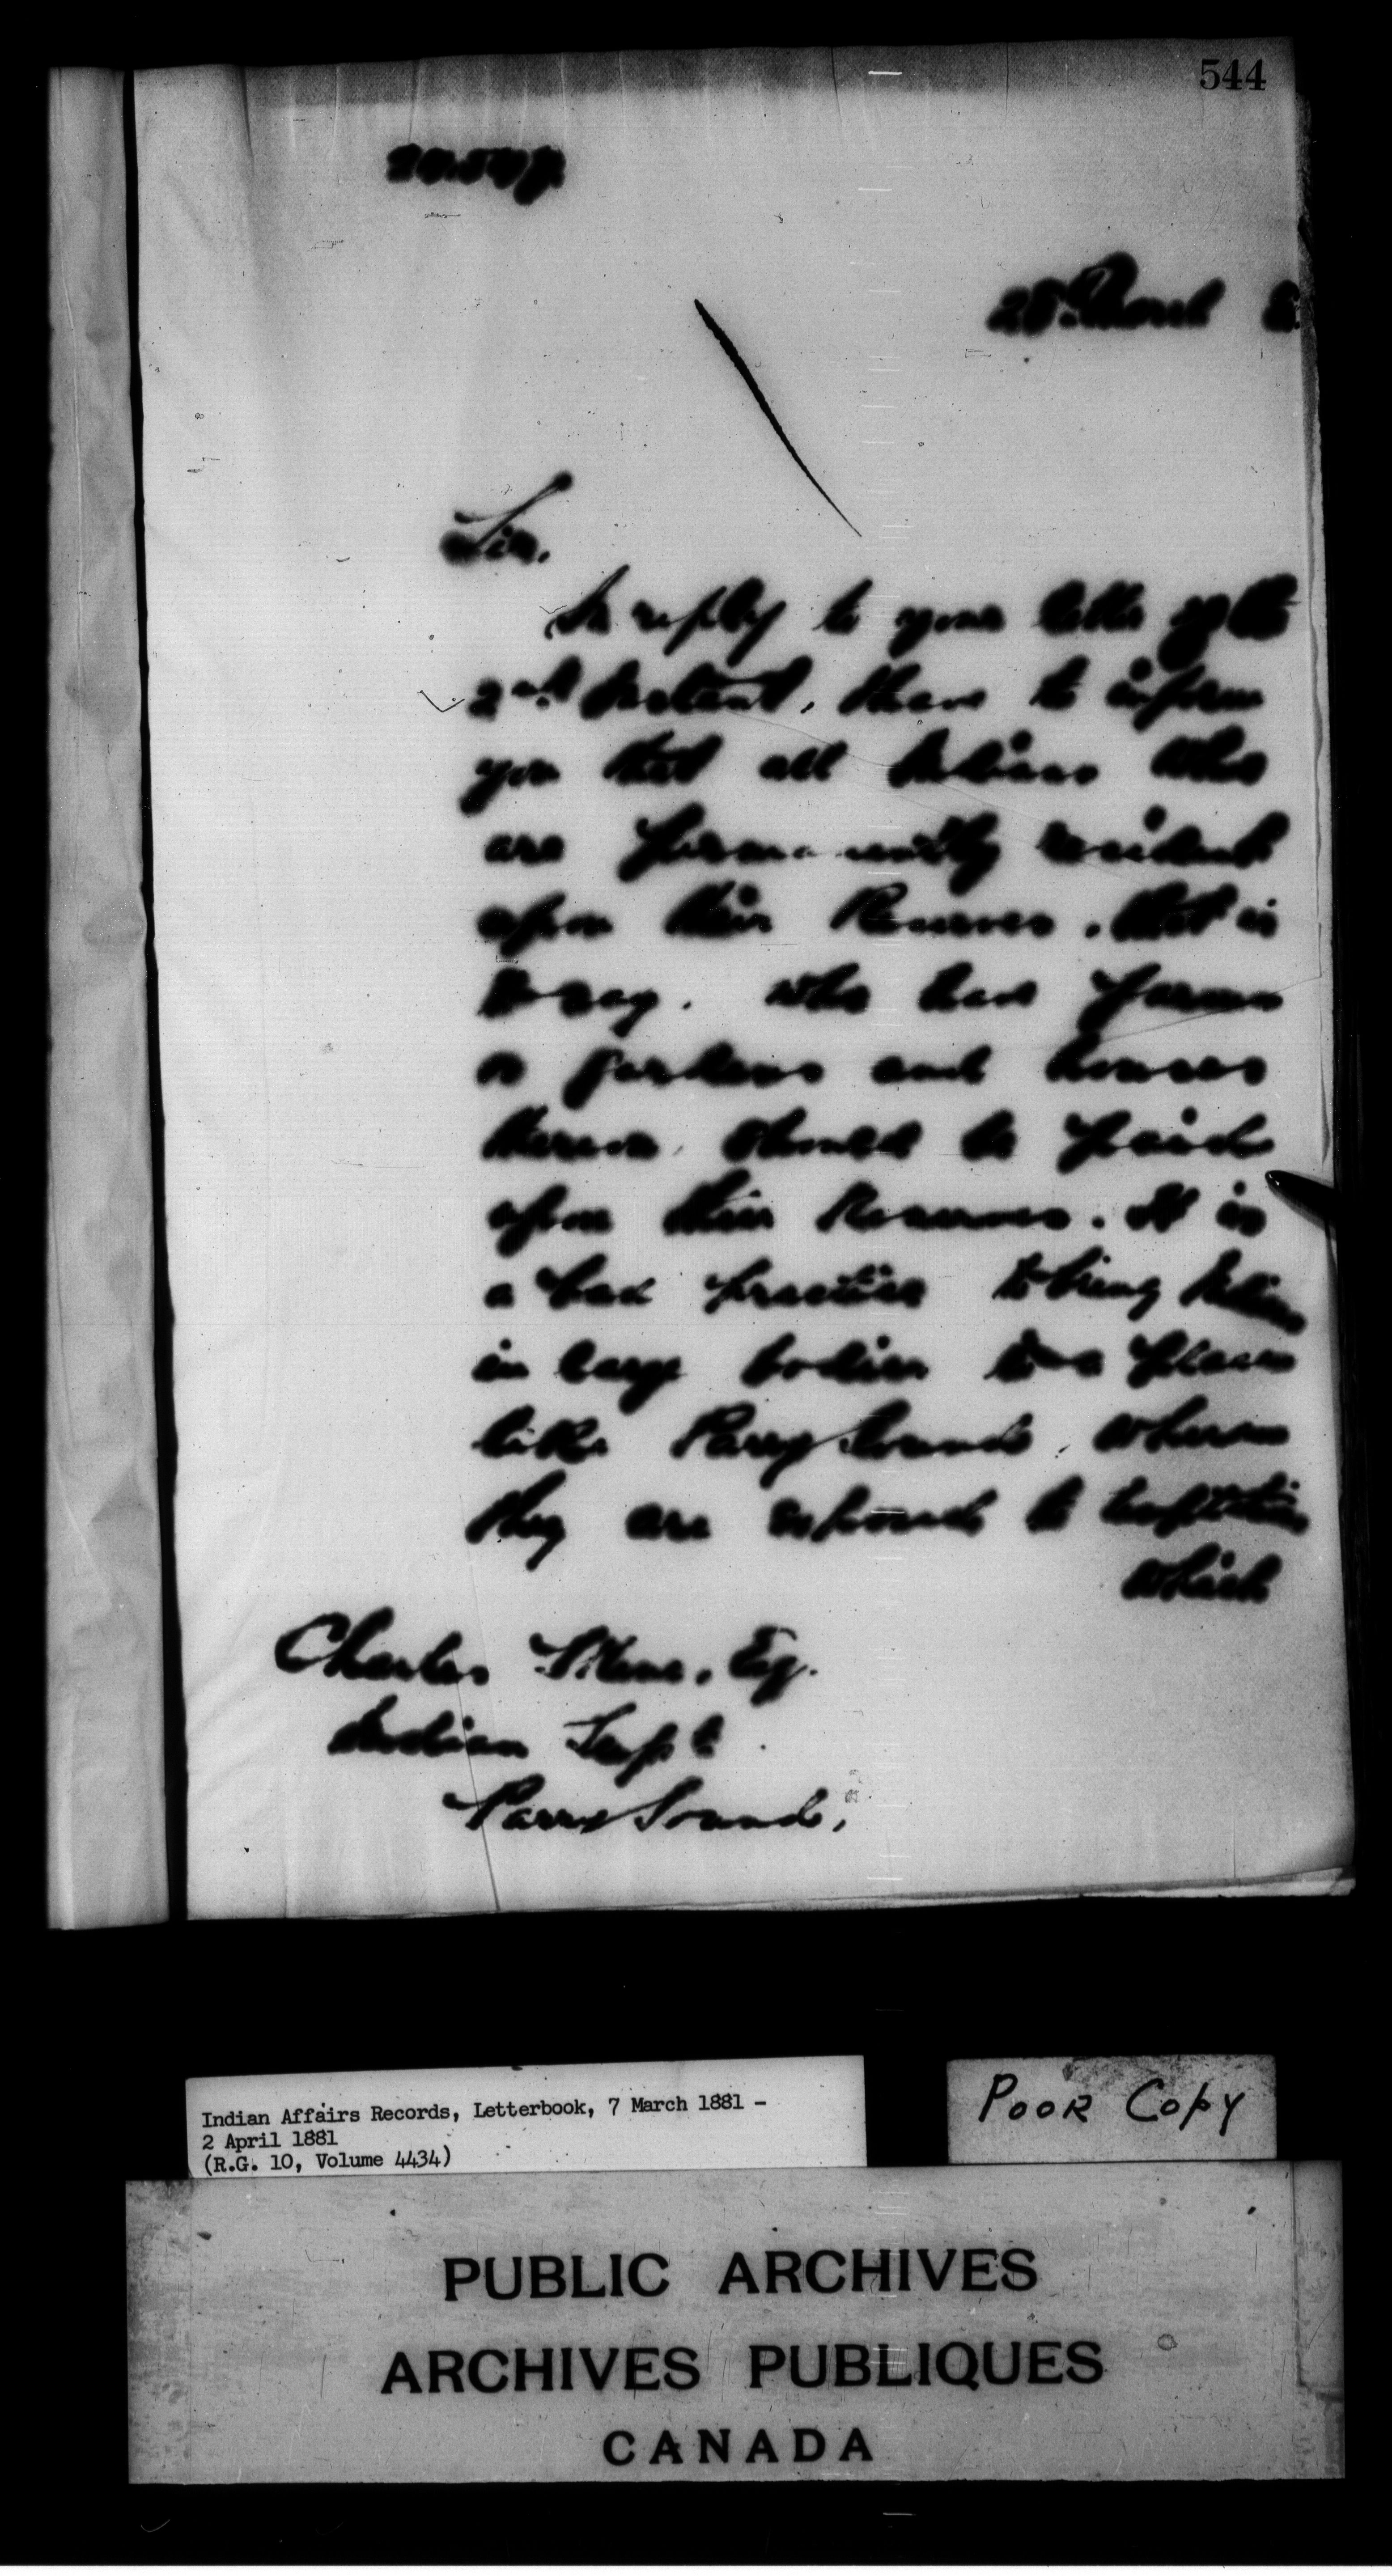 544
28th March
Sir,
In reply to your letter of the
2nd Instant, I have to inform
you that all Indians who
are permanently resident
upon their Reserves, that is
to say, who have farms
or gardens and houses
thereon, should be paid
upon their Reserves. It is
a bad practice to bring Indians
in large bodies to a place
like Parry Sound, where
they are exposed to temptation
which
Charles Skene, Esq.
Indian Supt
Parry Sound,
Indian Affairs Records, Letterbook, 7 March 1881 -
2 April 1881
(R.G. 10, Volume 4434)
Poor Copy
PUBLIC ARCHIVES
ARCHIVES PUBLIQUES
CANADA